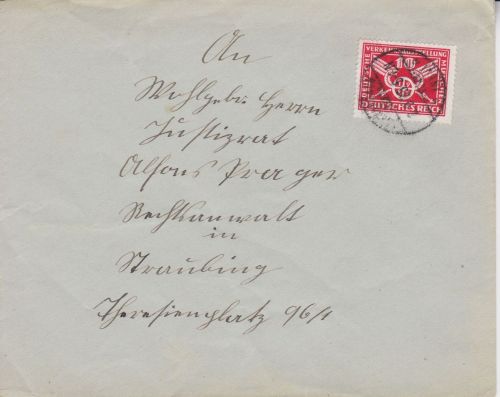 An
Wohlgeb. Herrn
Justizrat
Alfons Prager
Rechtsanwalt
in
Straubing
Theresienplatz 96/1
DEUTSCHE VERKEHRSAUSSTELLUNG MÜNCHEN
10
DEUTSCHES REICH